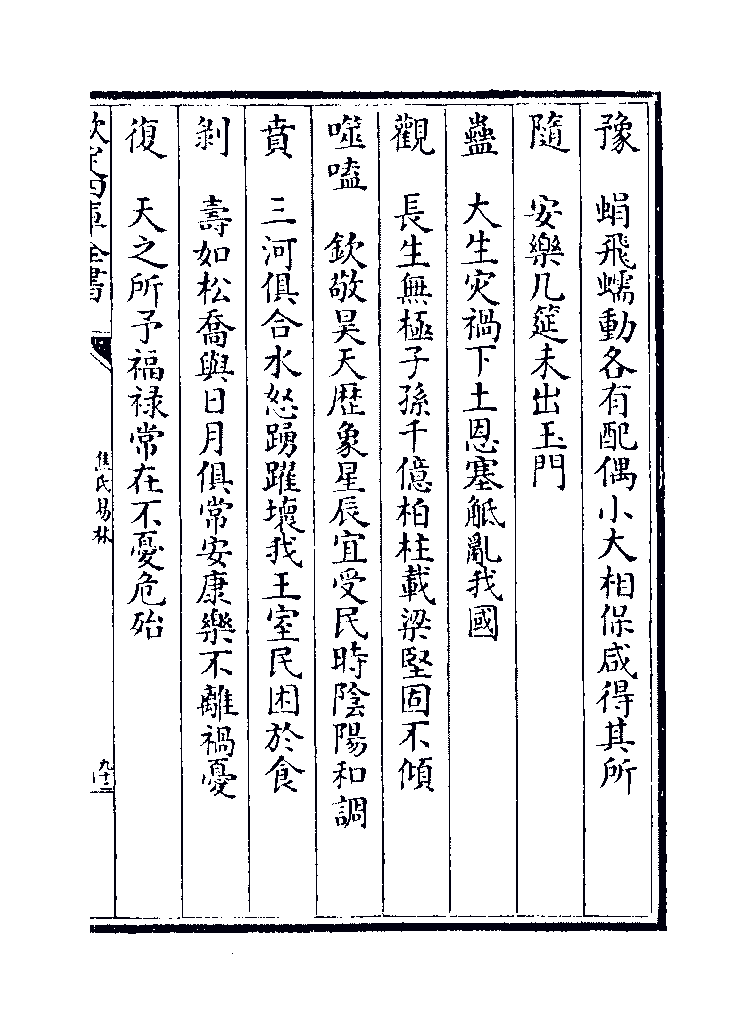 豫　蜎飛蠕動各有配偶小大相保咸得其所
隨　安樂几筵未出玉門
蠱　大生灾禍下土恩塞觝亂我國
觀　長生無極子孫千億柏柱載梁堅固不傾
噬嗑　欽敬昊天歴象星辰宜受民時陰陽和調
賁　三河俱合水怒踴躍壞我王室民困於食
剝　壽如松喬與日月俱常安康樂不離禍憂
復　天之所予福禄常在不憂危殆
欽定四庫全書
焦氏易林
九十二